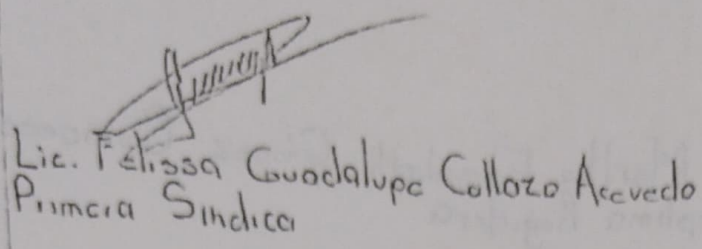 Lic. Felissa Guadalupe Collazo Acevedo
Primera Sindica